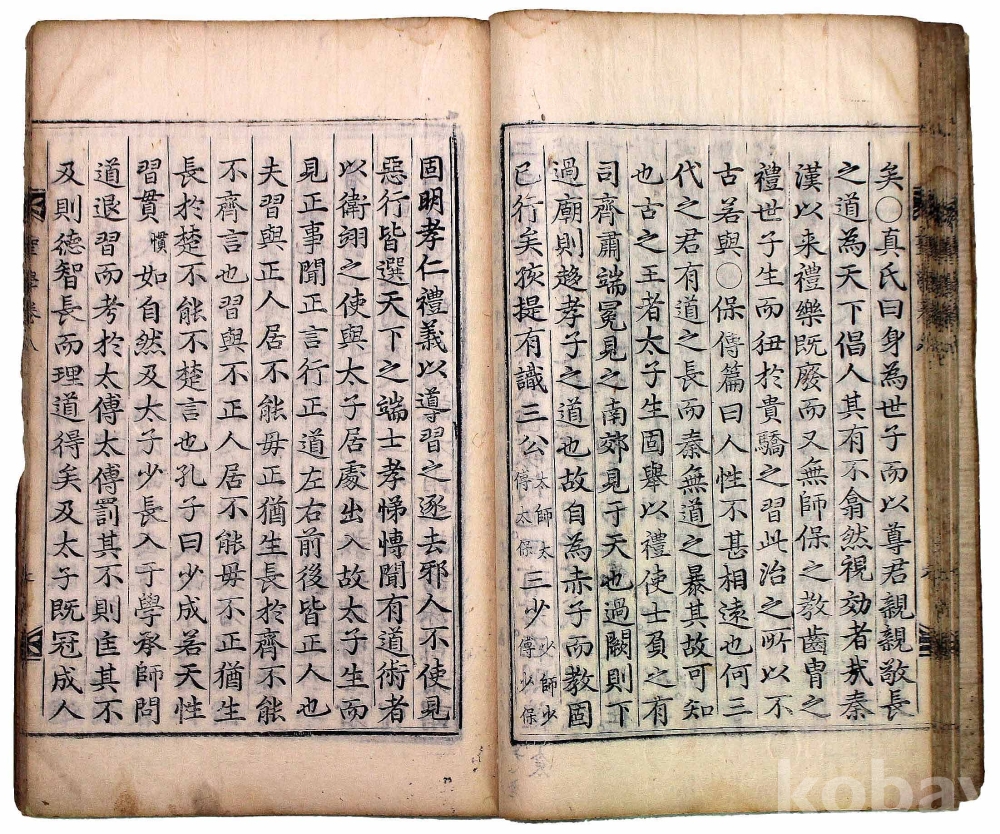 矣○真氏曰身為世子而以尊君親親敬長
之道為天下倡人其有不翕然視効者㢤秦
漢以来禮樂既廢而又無師保之教齒胄之
禮世子生而狃於貴驕之習此治之所以不
古若與○保傅篇曰人性不甚相遠也何三
代之君有道之長而秦無道之暴其故可知
也古之王者太子生固舉以禮使士負之有
司齊肅端冕見之南郊見于天也過闕則下
過廟則趍孝子之道也故自為赤子而教固
已行矣孩提有識三公太師太傅太保三少少師少傅少保
固明孝仁禮義以導習之逐去邪人不使見
惡行皆選天下之端士孝悌愽聞有道術者
以衛翊之使與太子居處出入故太子生而
見正事聞正言行正道左右前後皆正人也
夫習與正人居不能毋正猶生長於齊不能
不齊言也習與不正人居不能毋不正猶生
長於楚不能不楚言也孔子曰少成若天性
習貫慣如自然及太子少長入于學承師問
道退習而考於太傅太傅罰其不則匡其不
及則德智長而理道得矣及太子既冠成人
kobay